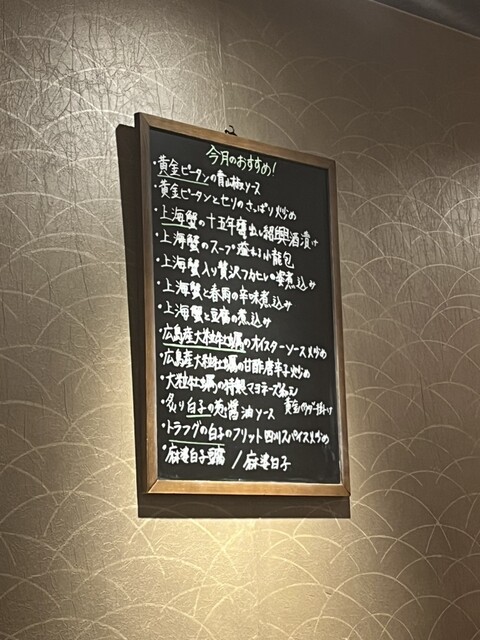 今月のおすすめ!
・黄金ピータンの青山椒ソース
・黄金ピータンとセリのさっぱり炒め
・上海蟹の十五年甕出し紹興酒漬け
・上海蟹のスープ溢れる小龍包
・上海蟹入り贅沢フカヒレの姿煮込み
・上海蟹と春雨の辛味煮込み
・上海蟹と豆腐の煮込み
・広島産大粒牡蠣のオイスターソース炒め
・広島産大粒牡蠣の甘酢唐辛子炒め
・大粒牡蠣の特製マヨネーズ和え
黄金パウダー掛け
・炙り白子の葱醤油ソース
・トラフグの白子のフリット四川スパイス炒め
・麻婆白子豆腐 / 麻婆白子